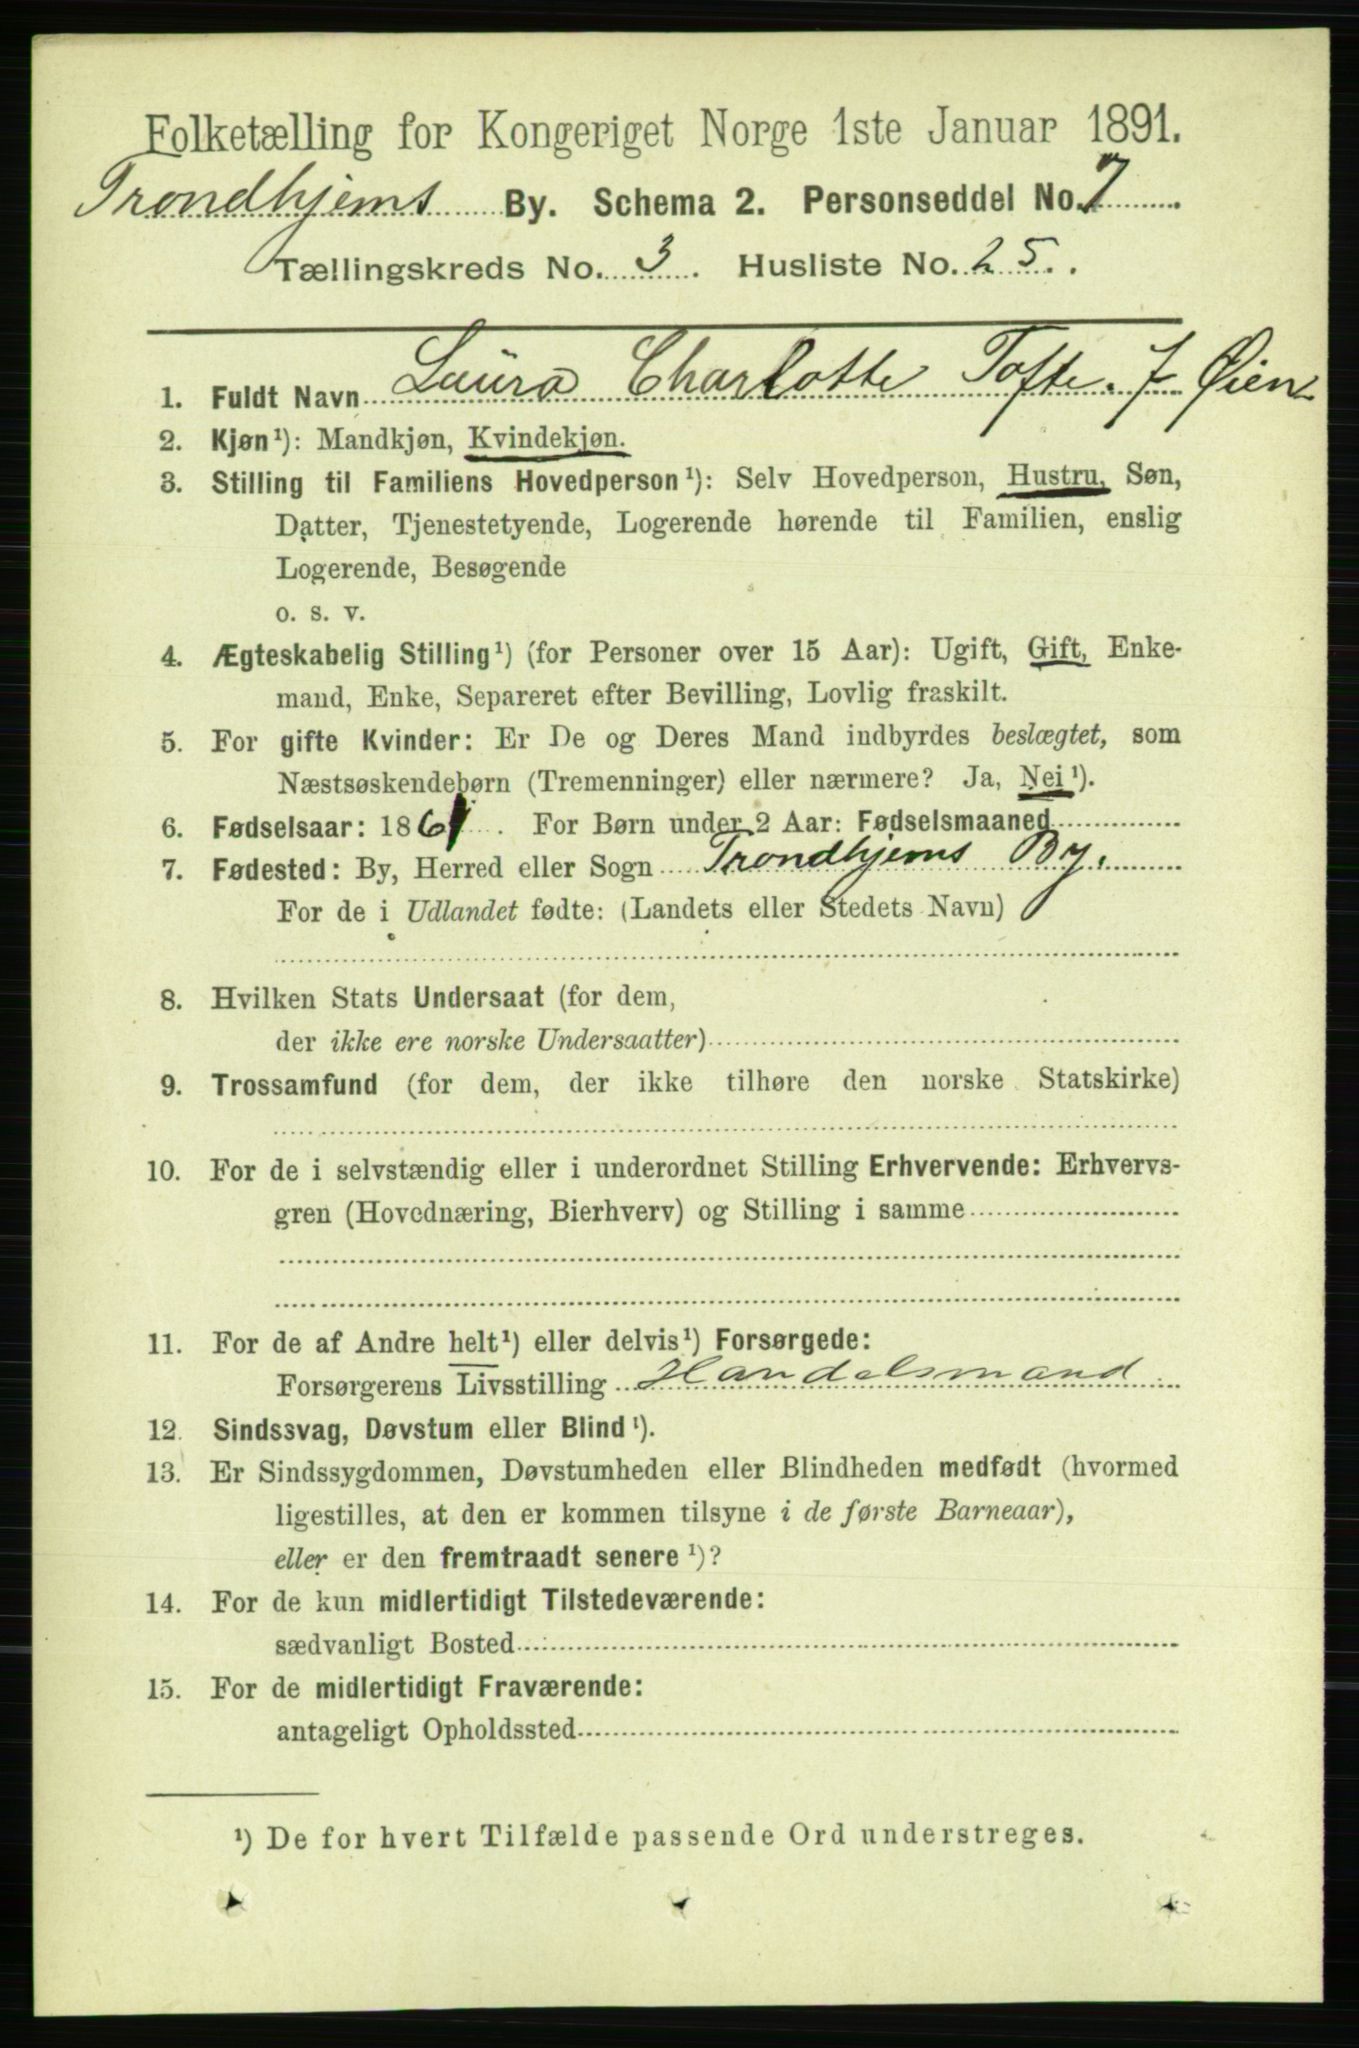 Folketælling for Kongeriget Norge 1ste Januar 1891.
Trondhjems By. Schema 2. Personseddel No. 7
Tællingskreds No. 3. Husliste No. 25.
1. Fuldt Navn Laura Charlotte Tofte. f Øien
2. Kjøn¹): Mandkjøn, Kvindekjøn.
3. Stilling til Familiens Hovedperson¹): Selv Hovedperson, Hustru, Søn,
Datter, Tjenestetyende, Logerende hørende til Familien, enslig
Logerende, Besøgende
o. s. v.
4. Ægteskabelig Stilling¹) (for Personer over 15 Aar): Ugift, Gift, Enke-
mand, Enke, Separeret efter Bevilling, Lovlig fraskilt.
5. For gifte Kvinder: Er De og Deres Mand indbyrdes beslægtet, som
Næstsøskendebørn (Tremenninger) eller nærmere? Ja, Nei¹).
6. Fødselsaar: 1861. For Børn under 2 Aar: Fødselsmaaned
7. Fødested: By, Herred eller Sogn Trondhjems By.
For de i Udlandet fødte: (Landets eller Stedets Navn)
8. Hvilken Stats Undersaat (for dem,
der ikke ere norske Undersaatter)
9. Trossamfund (for dem, der ikke tilhøre den norske Statskirke)
10. For de i selvstændig eller i underordnet Stilling Erhvervende: Erhvervs-
gren (Hovednæring, Bierhverv) og Stilling i samme
11. For de af Andre helt¹) eller delvis¹) Forsørgede:
Forsørgerens Livsstilling Handelsmand
12. Sindssvag, Døvstum eller Blind¹).
13. Er Sindssygdommen, Døvstumheden eller Blindheden medfødt (hvormed
ligestilles, at den er kommen tilsyne i de første Barneaar),
eller er den fremtraadt senere¹)?
14. For de kun midlertidigt Tilstedeværende:
sædvanligt Bosted
15. For de midlertidigt Fraværende:
antageligt Opholdssted
¹) De for hvert Tilfælde passende Ord understreges.